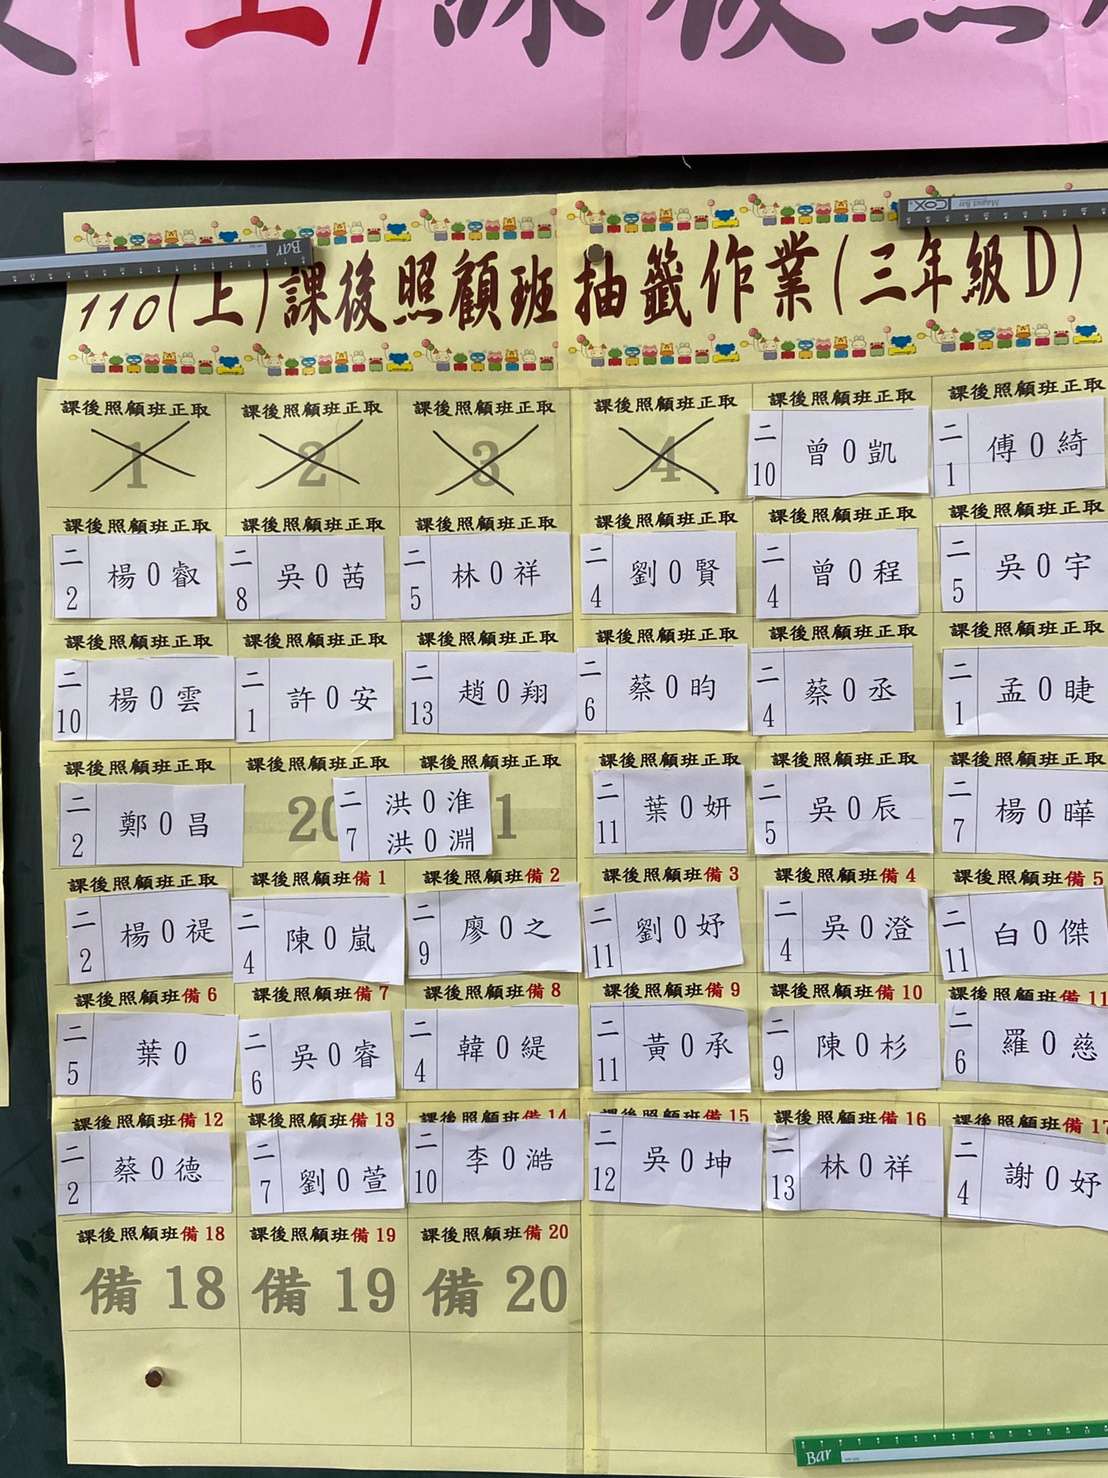 (上)課後照
Bar
COX
110(上)課後照顧班抽籤作業(三年級D)
課後照顧班正取 課後照顧班正取 課後照顧班正取 課後照顧班正取 課後照顧班正取 課後照顧班正取
1 2 3 4 二10 曾0凱 二1 傅0綺
課後照顧班正取 課後照顧班正取 課後照顧班正取 課後照顧班正取 課後照顧班正取 課後照顧班正取
二2 楊0叡 二8 吳0茜 二5 林0祥 二4 劉0賢 二4 曾0程 二5 吳0宇
課後照顧班正取 課後照顧班正取 課後照顧班正取 課後照顧班正取 課後照顧班正取 課後照顧班正取
二10 楊0雲 二1 許0安 二13 趙0翔 二6 蔡0昀 二4 蔡0丞 二1 孟0睫
課後照顧班正取 課後照顧班正取 課後照顧班正取 課後照顧班正取 課後照顧班正取 課後照顧班正取
二2 鄭0昌 20 二7 洪0淮 洪0淵 1 二11 葉0妍 二5 吳0辰 二7 楊0曄
課後照顧班正取 課後照顧班備1 課後照顧班備2 課後照顧班備3 課後照顧班備4 課後照顧班備5
二2 楊0禔 二4 陳0嵐 二9 廖0之 二11 劉0妤 二4 吳0澄 二11 白0傑
課後照顧班備6 課後照顧班備7 課後照顧班備8 課後照顧班備9 課後照顧班備10 課後照顧班備11
二5 葉0 二6 吳0睿 二4 韓0緹 二11 黃0承 二9 陳0杉 二6 羅0慈
課後照顧班備12 課後照顧班備13 課後照顧班備14 課後照顧班備15 課後照顧班備16 課後照顧班備17
二2 蔡0德 二7 劉0萱 二10 李0澔 二12 吳0坤 二13 林0祥 二4 謝0妤
課後照顧班備18 課後照顧班備19 課後照顧班備20
備18 備19 備20
Bar